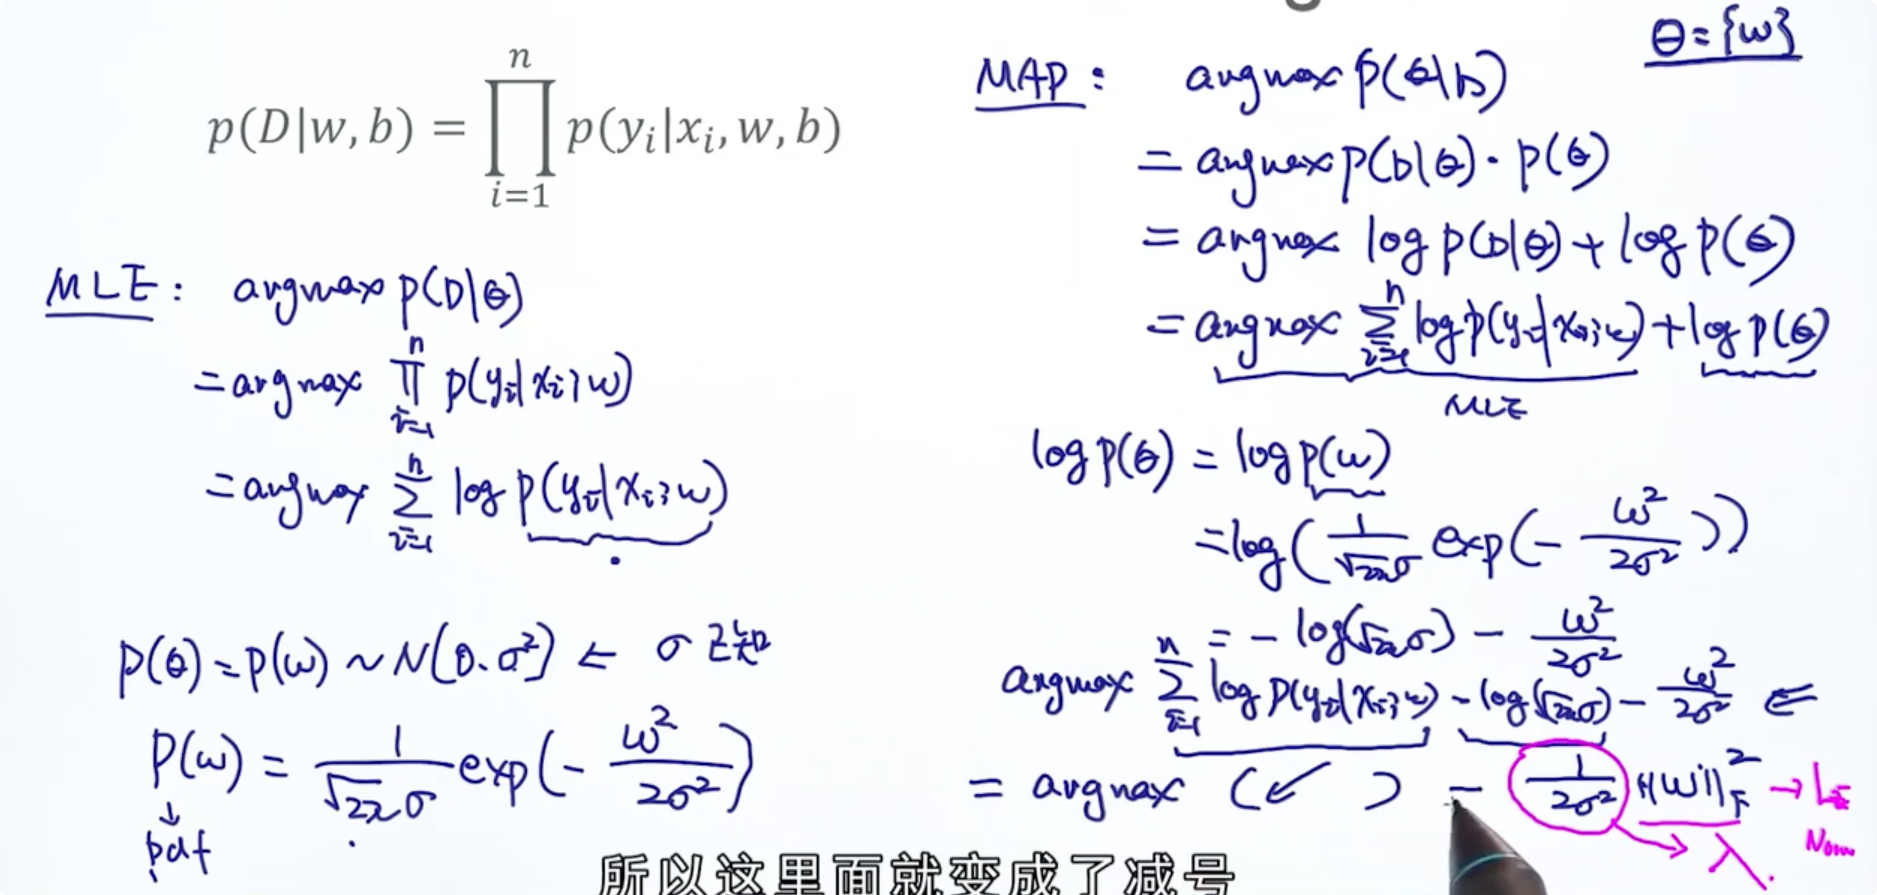 p(D|w, b) = ∏_{i=1}^{n} p(y_i|x_i, w, b)
MLE: argmax p(D|θ)
= argmax ∏_{i=1}^{n} p(y_i|x_i; w)
= argmax ∑_{i=1}^{n} log p(y_i|x_i; w)
p(θ) = p(w) ~ N(0, σ²) ← σ 已知
p(w) = 1/(√2π σ) exp(- w²/2σ²)
↓
pdf
θ = {w}
MAP: argmax p(θ|D)
= argmax p(D|θ) · p(θ)
= argmax log p(D|θ) + log p(θ)
= argmax ∑_{i=1}^{n} log p(y_i|x_i; w) + log p(θ)
MLE
log p(θ) = log p(w)
= log(1/(√2π σ) exp(- w²/2σ²))
= - log(√2π σ) - w²/2σ²
argmax ∑_{i=1}^{n} log p(y_i|x_i; w) - log(√2π σ) - w²/2σ² ⇐
= argmax (↙ ) - 1/2σ² ||w||²_F → L₂
Norm
→ λ.
所以这里面就变成了减号